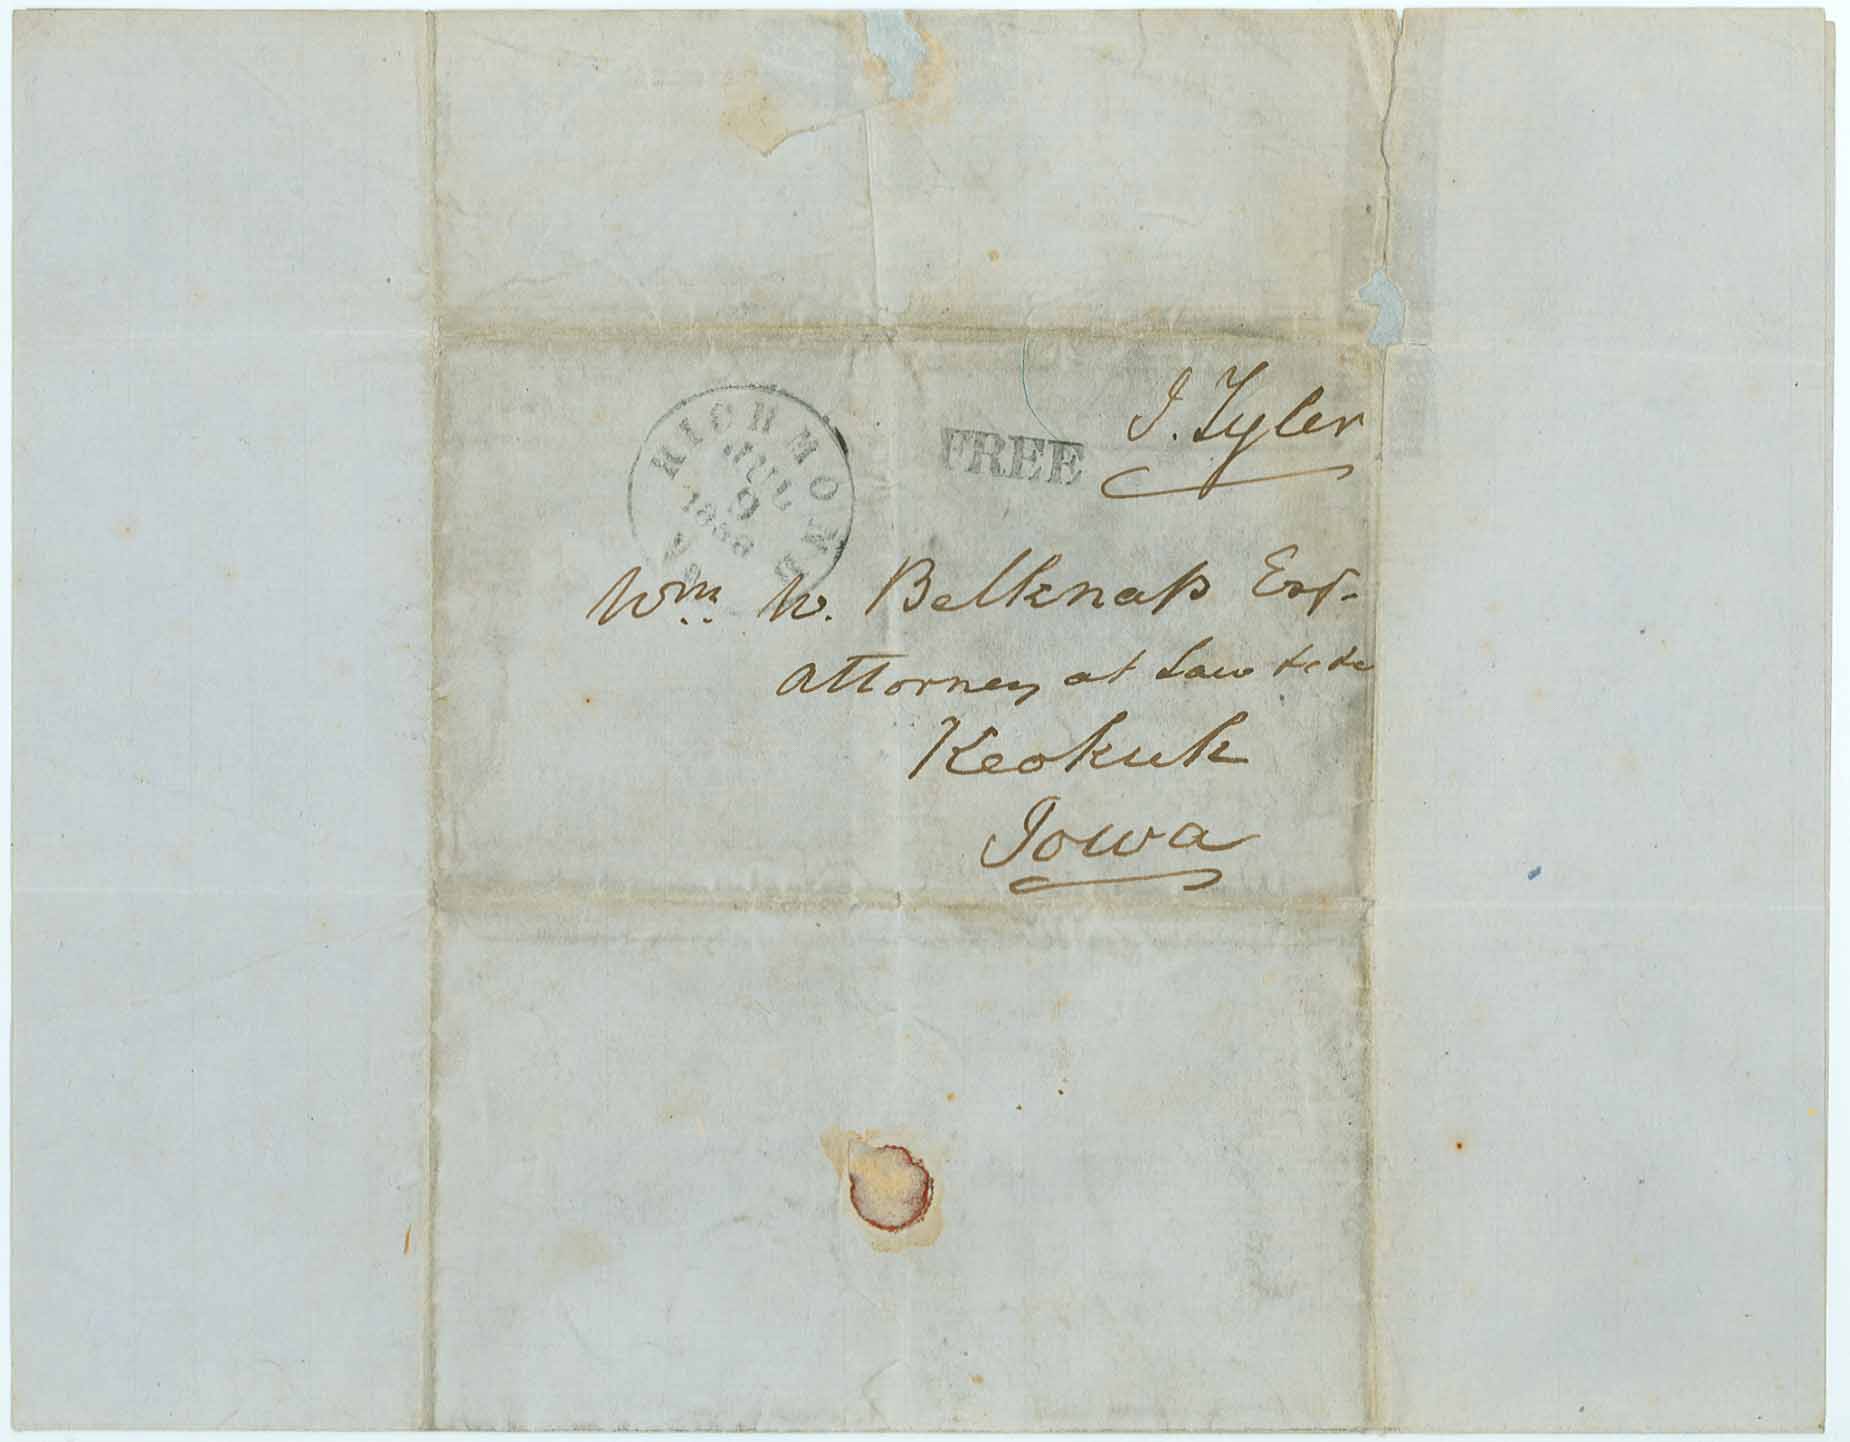 J. Tyler
FREE
RICHMOND
JUL
9
Wm. W. Belknap Esq.
Attorney at Law &c &c
Keokuk
Iowa